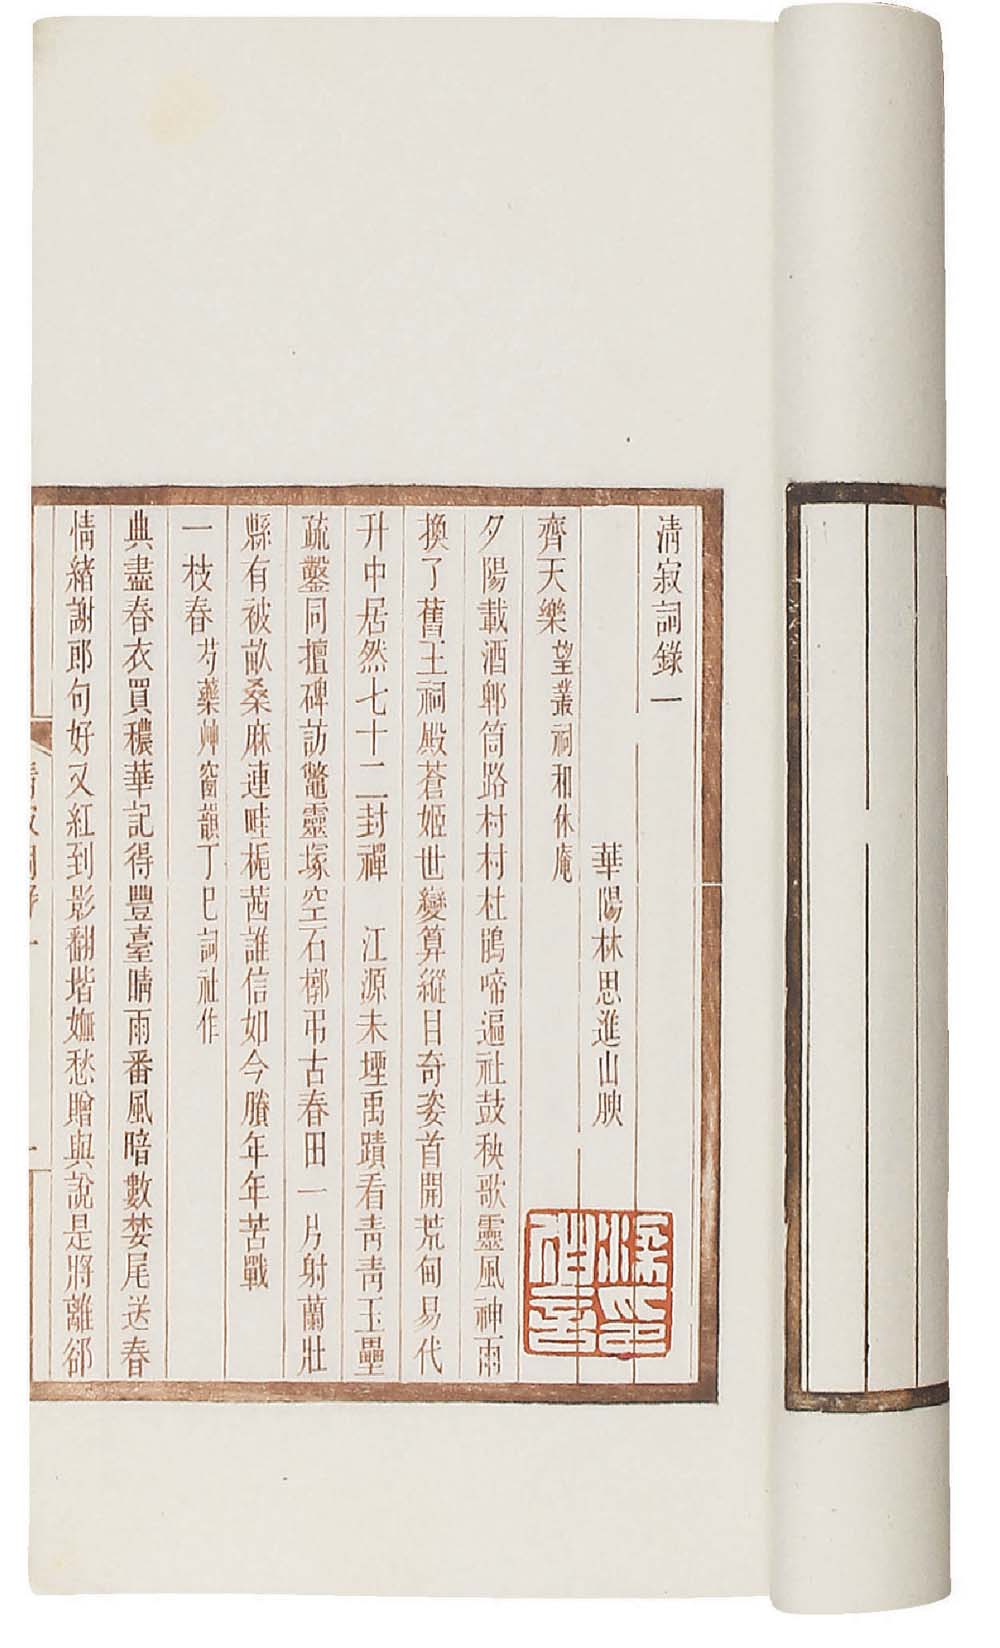 清寂詞錄一
華陽林思進山腴
齊天樂望叢祠和休庵
夕陽載酒郫筒路村村杜鵑啼遍社鼓秧歌靈風神雨
換了舊王祠殿蒼姬世變算縱目奇姿首開荒甸易代
升中居然七十二封禪　江源未堙禹蹟看靑靑玉壘
疏鑿同壇碑訪鼈靈塚空石槨弔古春田一片射蘭壯
縣有被畝桑麻連畦梔茜誰信如今賸年年苦戰
一枝春芍藥艸窗韻丁巳詞社作
典盡春衣買穠華記得豐臺晴雨番風暗數婪尾送春
情緒謝郎句好又紅到影翻堦嫵愁贈與說是將離郤